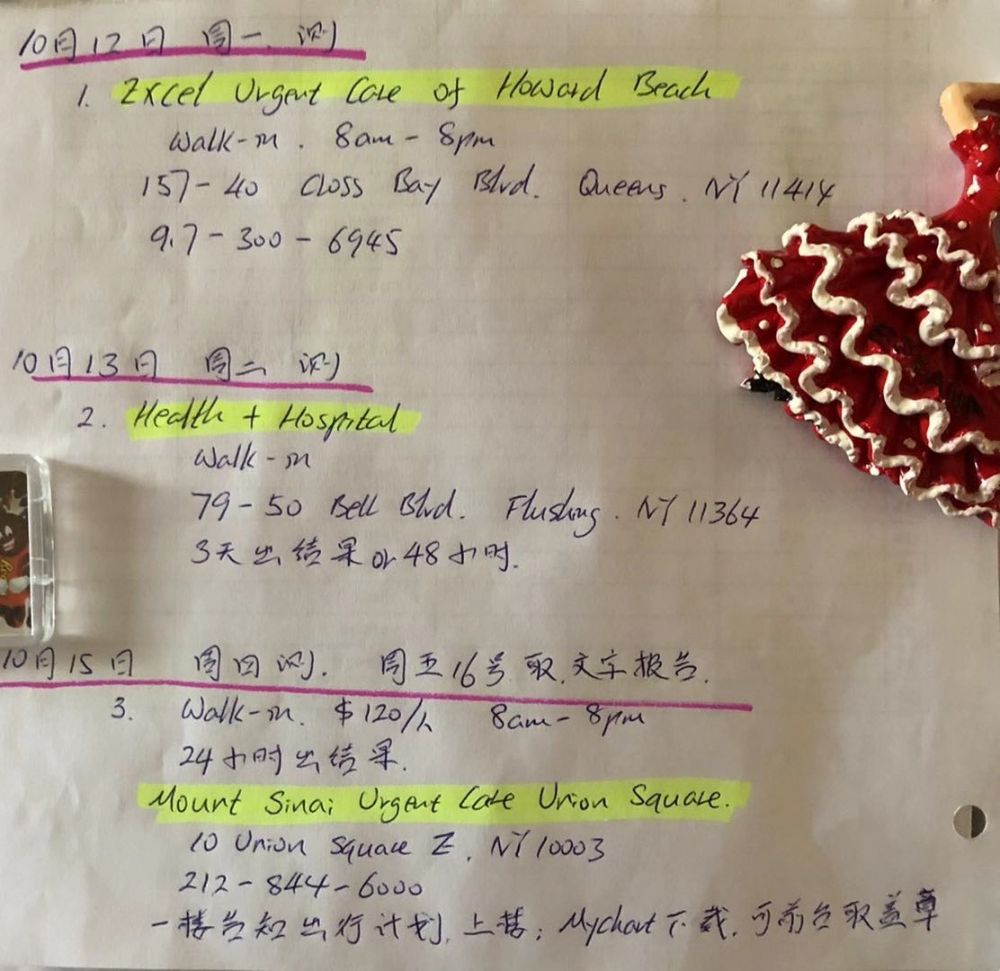 10月12日 周一 测
1. Excel Urgent Care of Howard Beach
Walk-in. 8am-8pm
157-40 Cross Bay Blvd. Queens. NY 11414
917-300-6945
10月13日 周二 测
2. Health + Hospital
Walk-in
79-50 Bell Blvd. Flushing. NY 11364
3天出结果 or 48小时.
10月15日 周四测. 周五16号取文字报告.
3. Walk-in. $120/人 8am-8pm
24小时出结果.
Mount Sinai Urgent Care Union Square.
10 Union Square E, NY 10003
212-844-6000
一楼告知出行计划, 上楼; Mychart下载, 可前台取盖章